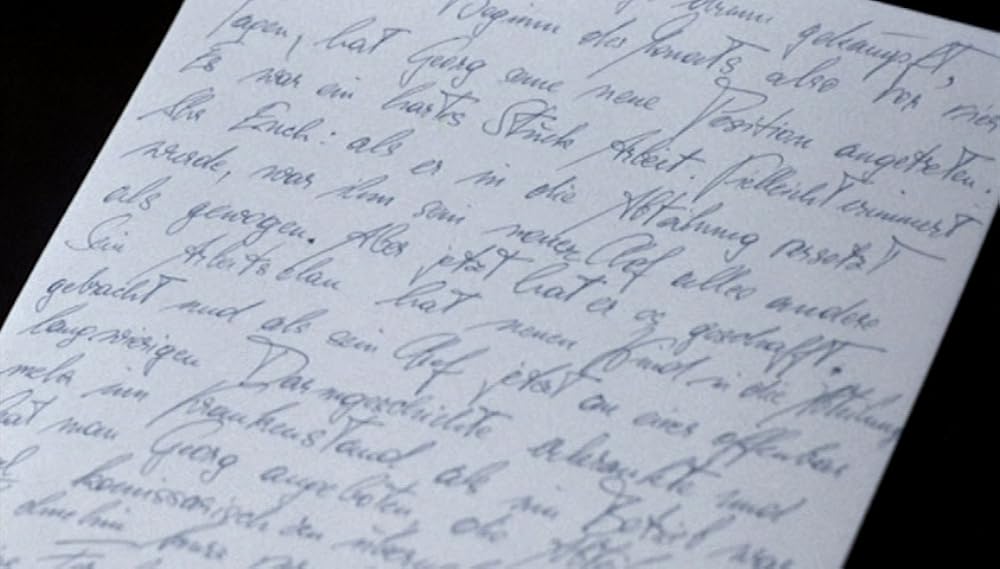 gekämpft,
Beginn des Monats also vor vier
Tagen, hat Georg eine neue Position angetreten.
Es war ein hartes Stück Arbeit. Vielleicht erinnert
Ihr Euch: als er in die Abteilung versetzt
wurde, war ihm sein neuer Chef alles andere
als gewogen. Aber jetzt hat er es geschafft.
Sein Arbeitsplan hat neuen Wind in die Abteilung
gebracht und als sein Chef jetzt an einer offenbar
langwierigen Darmgeschichte erkrankte und
mehr im Krankenstand als im Betrieb war
hat man Georg angeboten, die
komissarisch zu
ohnehin